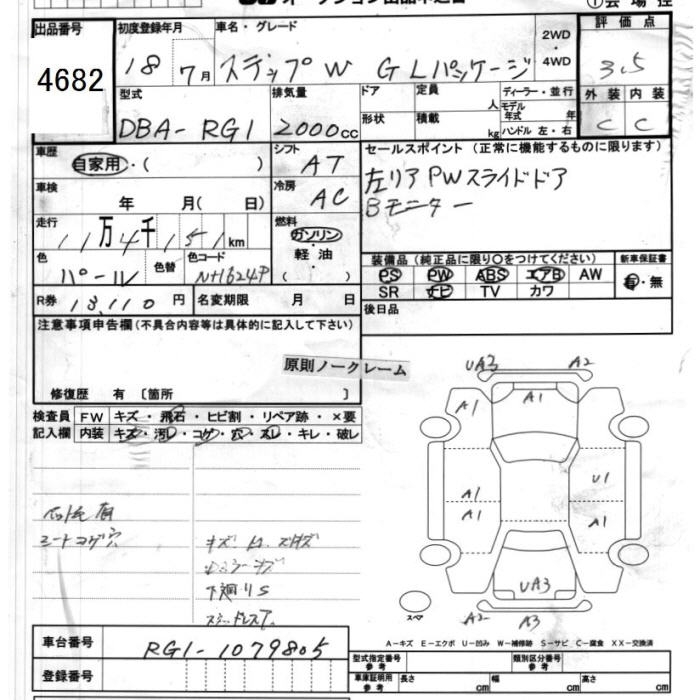 オークション出品申込書
①会場控
出品番号
初度登録年月
車名・グレード
2WD
・
4WD
評価点
4682
18 7月
ステップW GLパッケージ
3.5
型式
排気量
ドア
定員
人
ディーラー・並行
モデル年式 年
外装 内装
DBA-RG1
2000cc
形状
積載
kg
ハンドル 左・右
C C
車歴
自家用・( )
シフト
AT
セールスポイント(正常に機能するものに限ります)
左リアPWスライドドア
Bモニター
車検
年 月( 日)
冷房
AC
走行
11万4千151km
燃料
ガソリン
・
軽油
( )
色
パール
色替
色コード
NH624P
装備品(純正品に限り○をつけてください)
新車保証書
PS PW ABS エアB AW
SR ナビ TV カワ
有・無
R券 13,110円
名変期限 月 日
後日品
注意事項申告欄(不具合内容等は具体的に記入して下さい)
原則ノークレーム
修復歴 有 〔箇所 〕
検査員 FW キズ・飛石・ヒビ割・リペア跡・×要
記入欄 内装 キズ・汚レ・コゲ・穴・スレ・キレ・破レ
シートコゲ穴
下廻りS
UA3 A2
A1 A1
A1 U1
A1 A1
UA3
A2 A3
スペア
A-キズ E-エクボ U-凹み W-補修跡 S-サビ C-腐食 XX-交換済
車台番号
RG1-1079805
登録番号
型式指定番号
参考
類別区分番号
参考
車庫証明用
参考
長さ cm
幅 cm
高さ cm